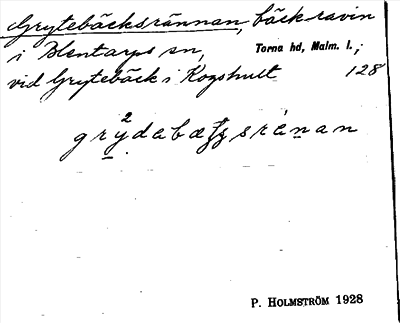 Grytebäcksrännan, bäckravin
i Blentarps sn, Torna hd, Malm. l.;
vid Grytebäck i Kogshult 128
P. HOLMSTRÖM 1928